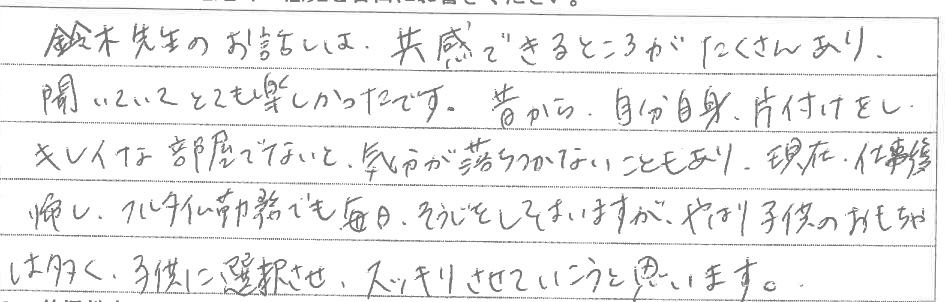 鈴木先生のお話しは、共感できるところがたくさんあり、
聞いていてとても楽しかったです。昔から、自分自身、片付けをし
キレイな部屋でないと、気分が落ちつかないこともあり、現在、仕事復
帰し、フルタイム勤務でも毎日、そうじをしてはいますが、やはり子供のおもちゃ
は多く、子供に選択させ、スッキリさせていこうと思います。